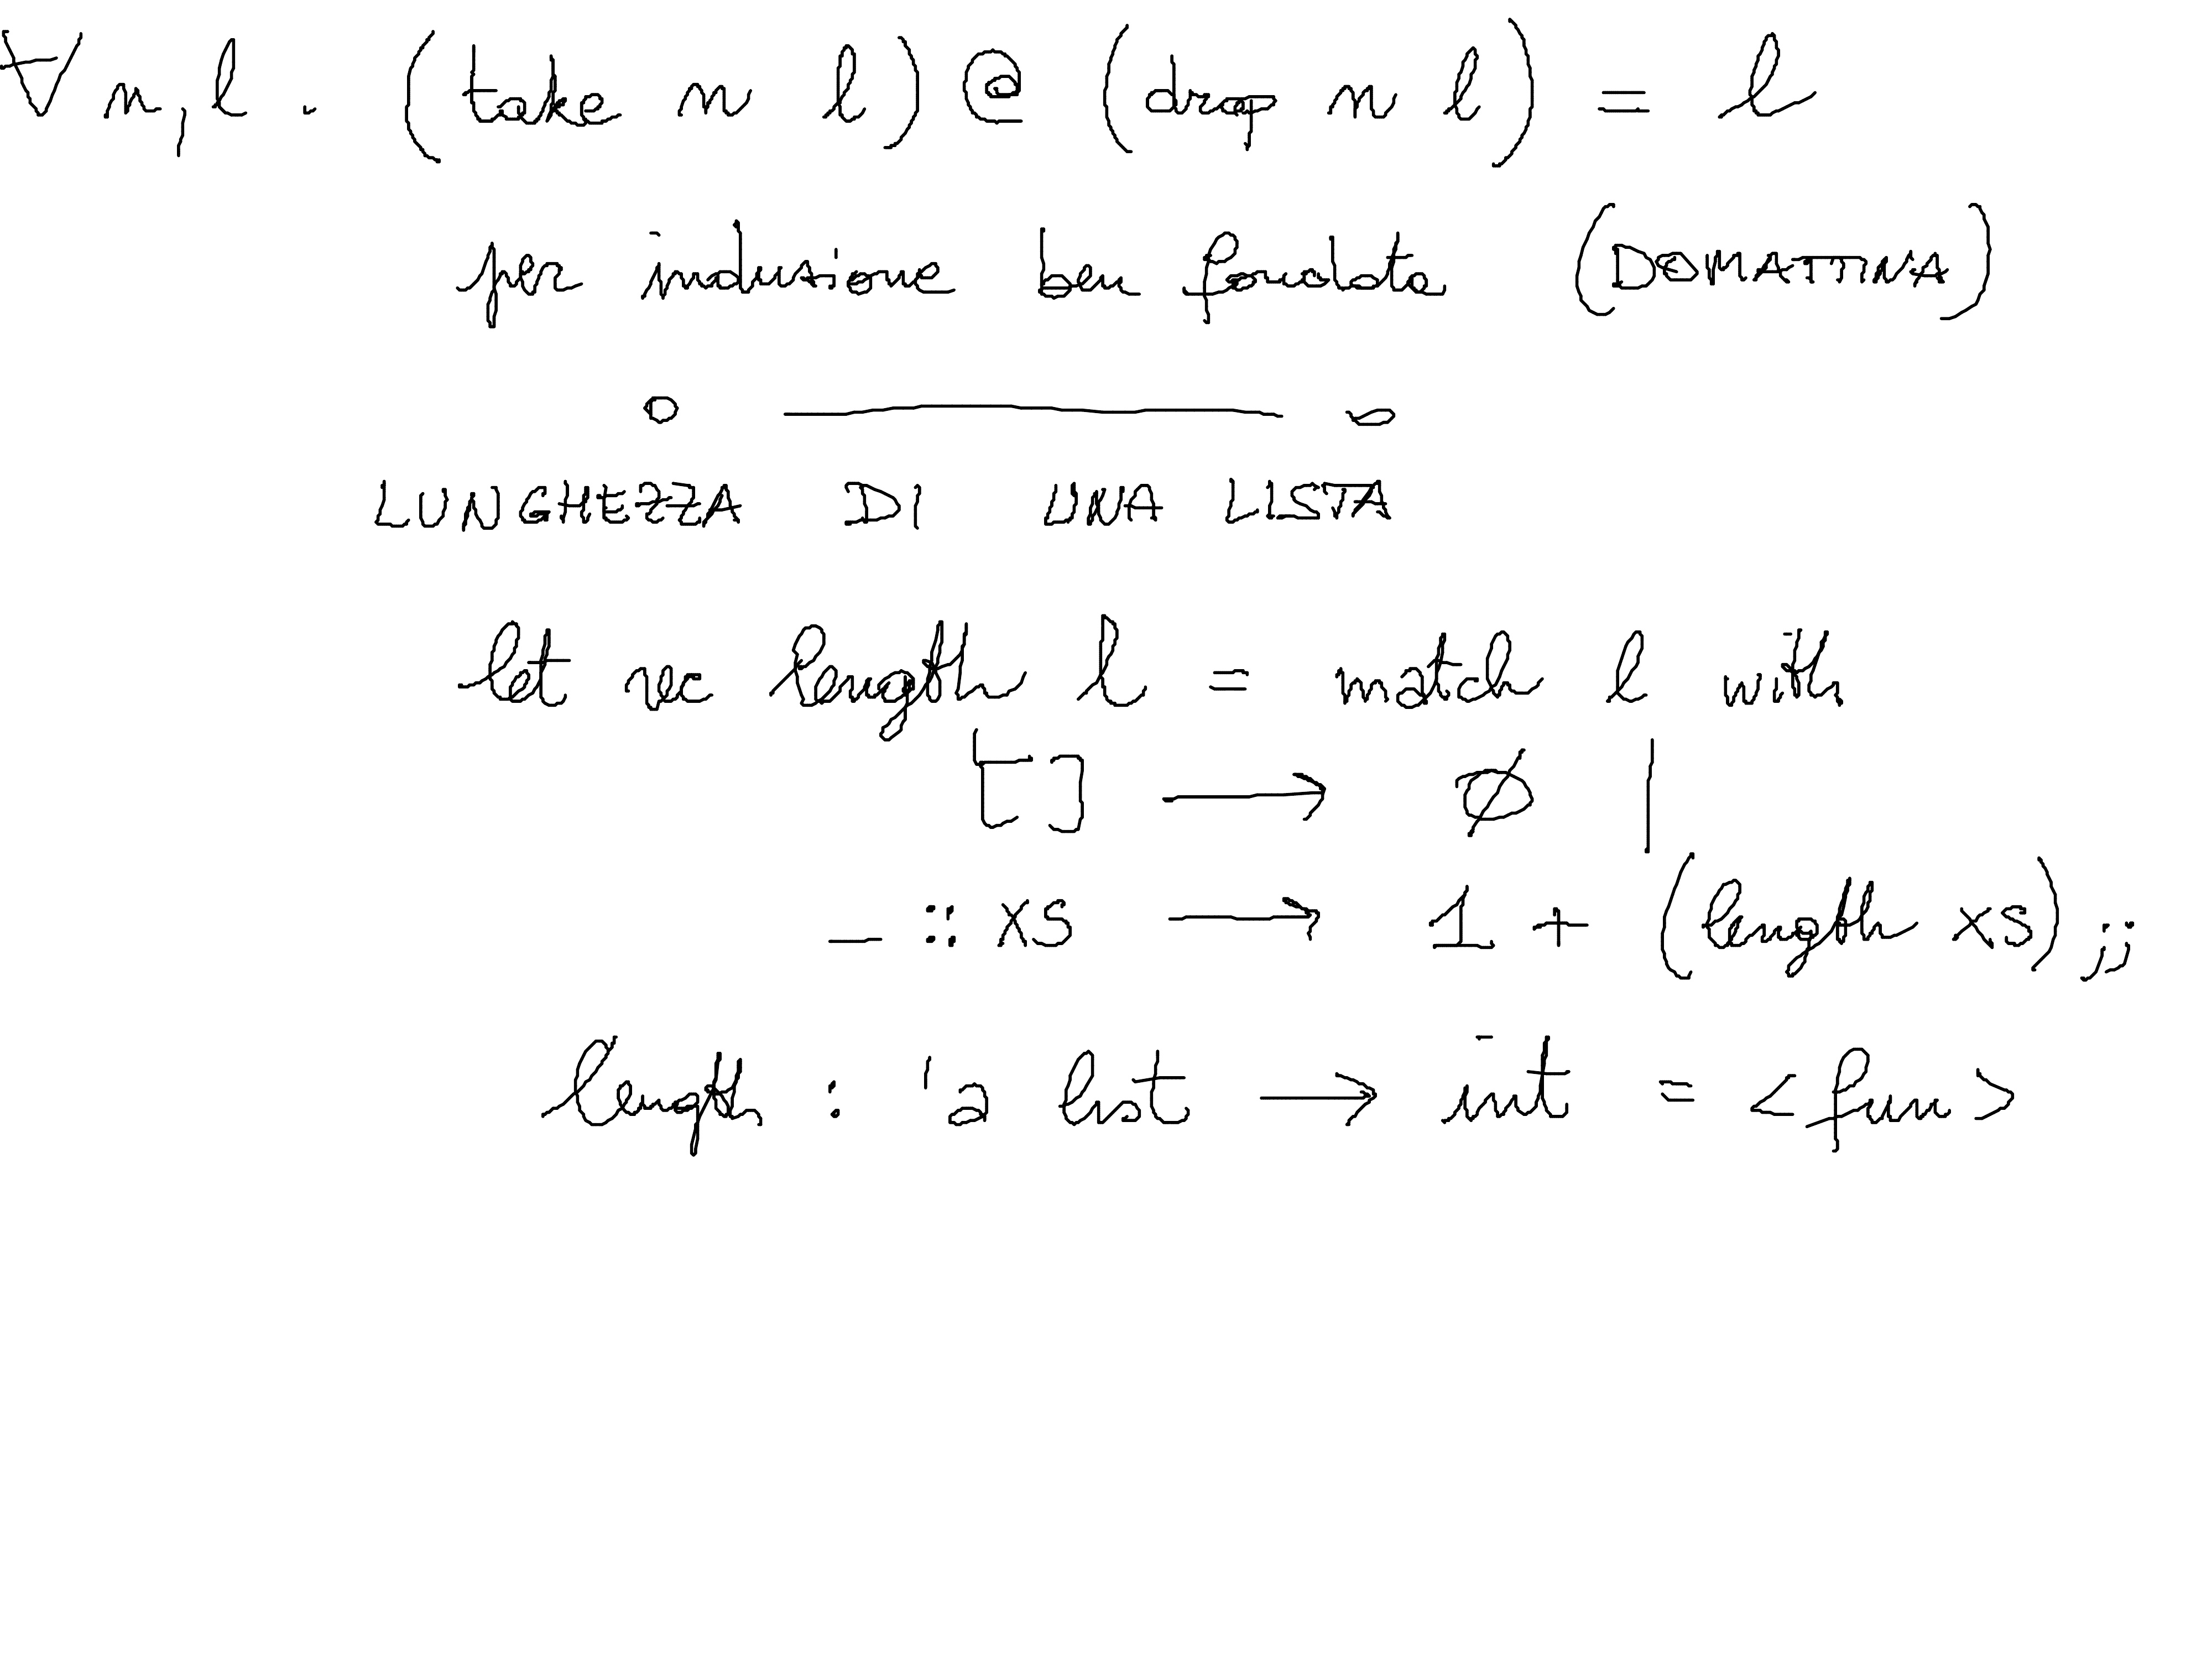 ∀ n, l . (take n l) @ (drop n l) = l
per induzione ben fondata (DOMATTINA)
LUNGHEZZA DI UNA LISTA
let rec length l = match l with
[] → ∅ |
_ :: xs → 1 + (length xs) ;;
length : 'a list → int = <fun>